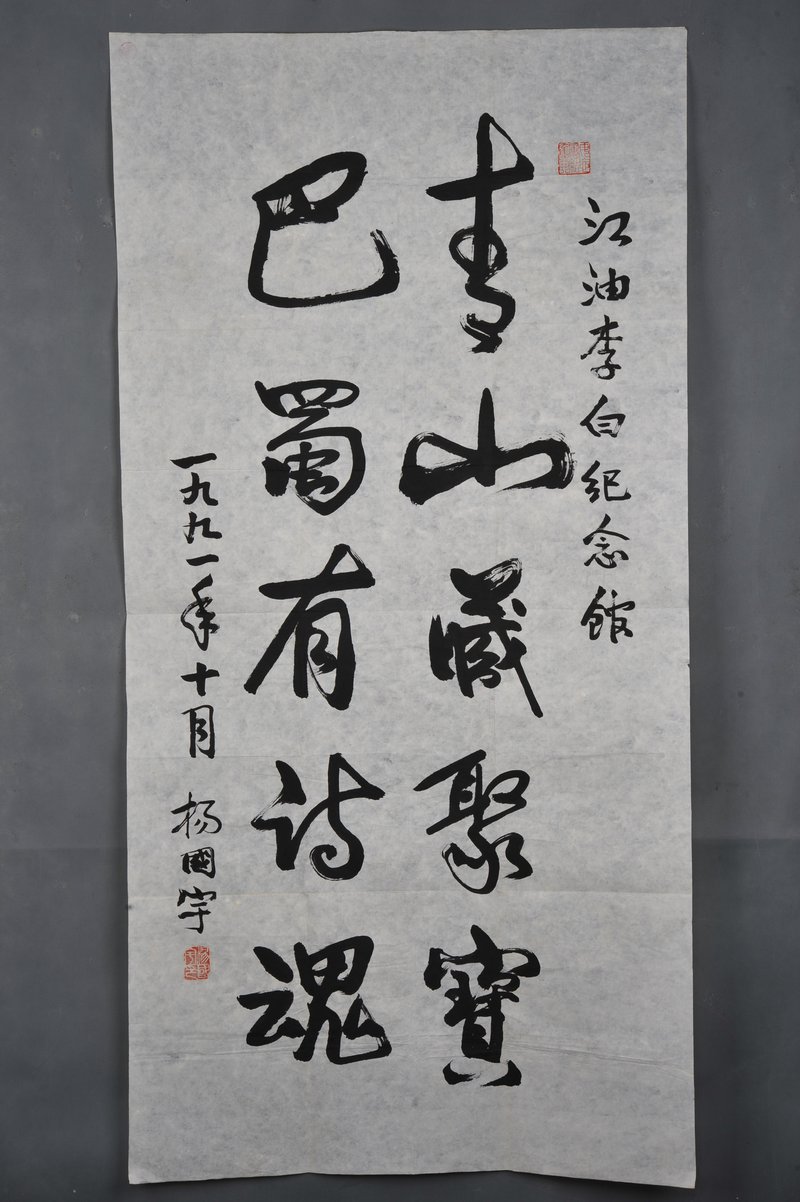 江油李白纪念館
青山藏聚寳
巴蜀有诗魂
一九九一年十月 杨國宇